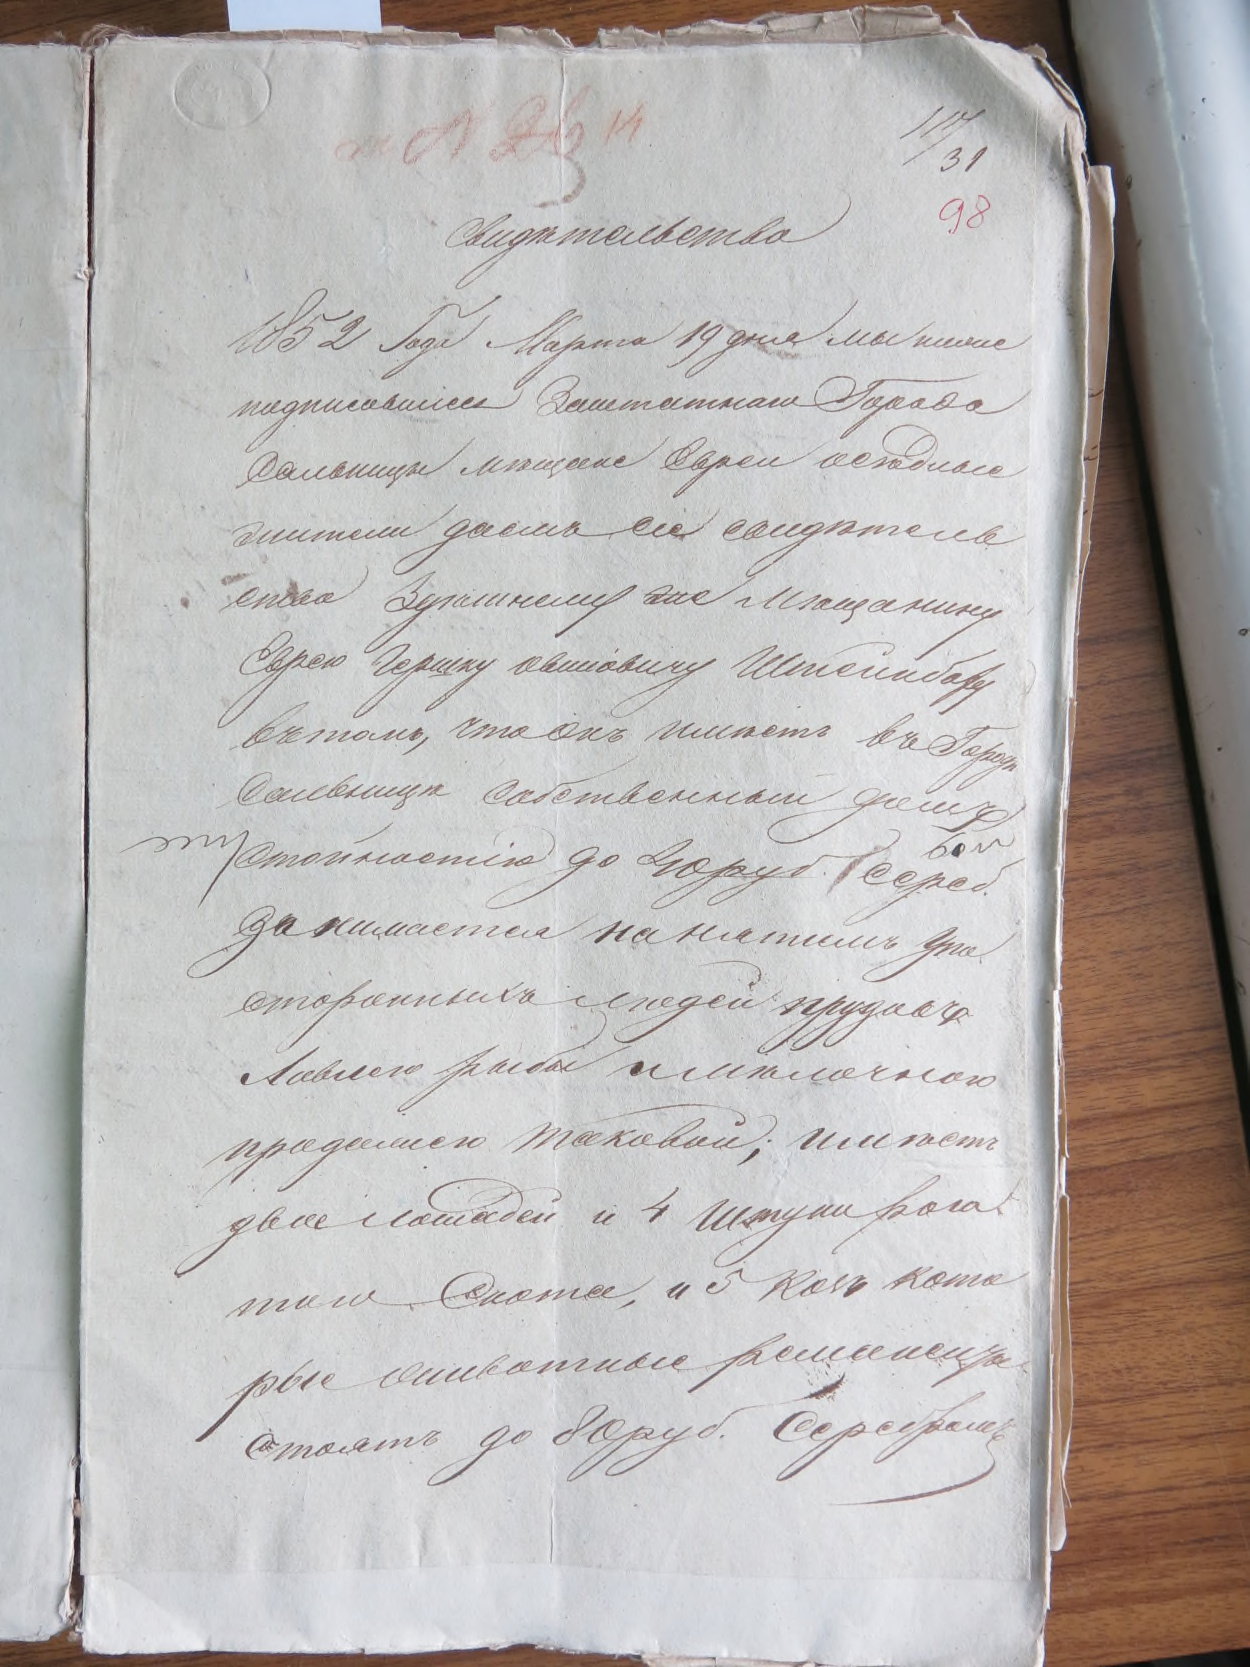 № 14
117
31
98
Свидѣтельство
1852 Года Марта 19 дня мы ниже
подписавшіеся Заштатнаго Города
Сальницы мѣщане Евреи осѣдлые
жители даемъ сіе свидѣтель
ство здѣшнему же Мѣщанину
Еврею Гершку Овшіовичу Штейнбару
въ томъ, что онъ имѣетъ въ Городѣ
Сальницѣ собственный домъ
стойностію до 40 руб. сереб.
занимается нанятимъ у по
сторонныхъ людей прудовъ
Ловлею рыбы и мѣлочною
продажею таковой; имѣетъ
двое лошадей и 4 Штуки рога
таго Скота, и 5 Козъ кото
рые животные
стоятъ до 80 руб. Серебромъ